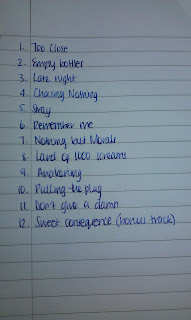 1. Too Close
2. Empty bottles
3. Late night
4. Chasing Nothing
5. Stray
6. Remember me
7. Nothing but Words
8. Land of 1000 screams
9. Awakening
10. Pulling the plug
11. Don't give a damn
12. Sweet consequence (bonus track)